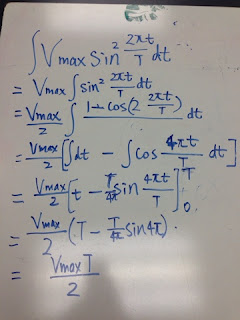 ∫Vmax Sin² 2πt/T dt
= Vmax ∫sin² 2πt/T dt
= Vmax/2 ∫ 1-cos(2 2πt/T) dt
= Vmax/2 [∫dt - ∫cos 4πt/T dt]
= Vmax/2 [t - T/4π sin 4πt/T]ᵀ₀
= Vmax/2 (T - T/4π sin4π).
= VmaxT/2